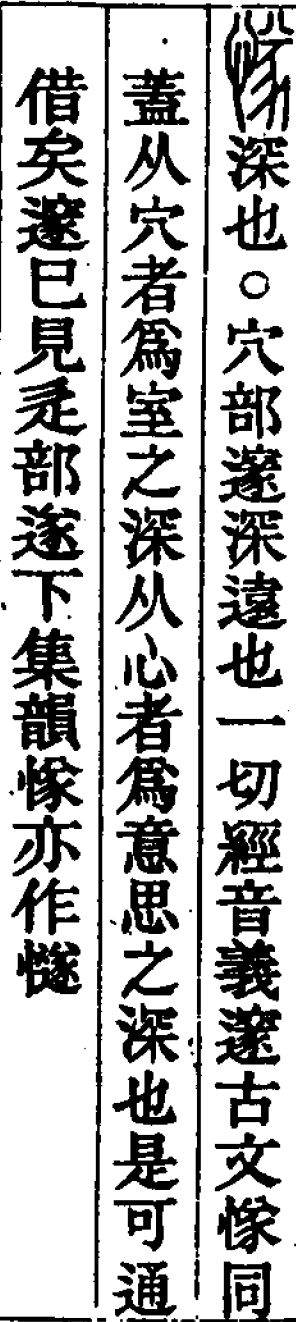 㥞深也○穴部邃深遠也一切經音義邃古文㥞同
蓋从穴者爲室之深从心者爲意思之深也是可通
借矣邃巳見辵部遂下集韻㥞亦作⿰忄遂